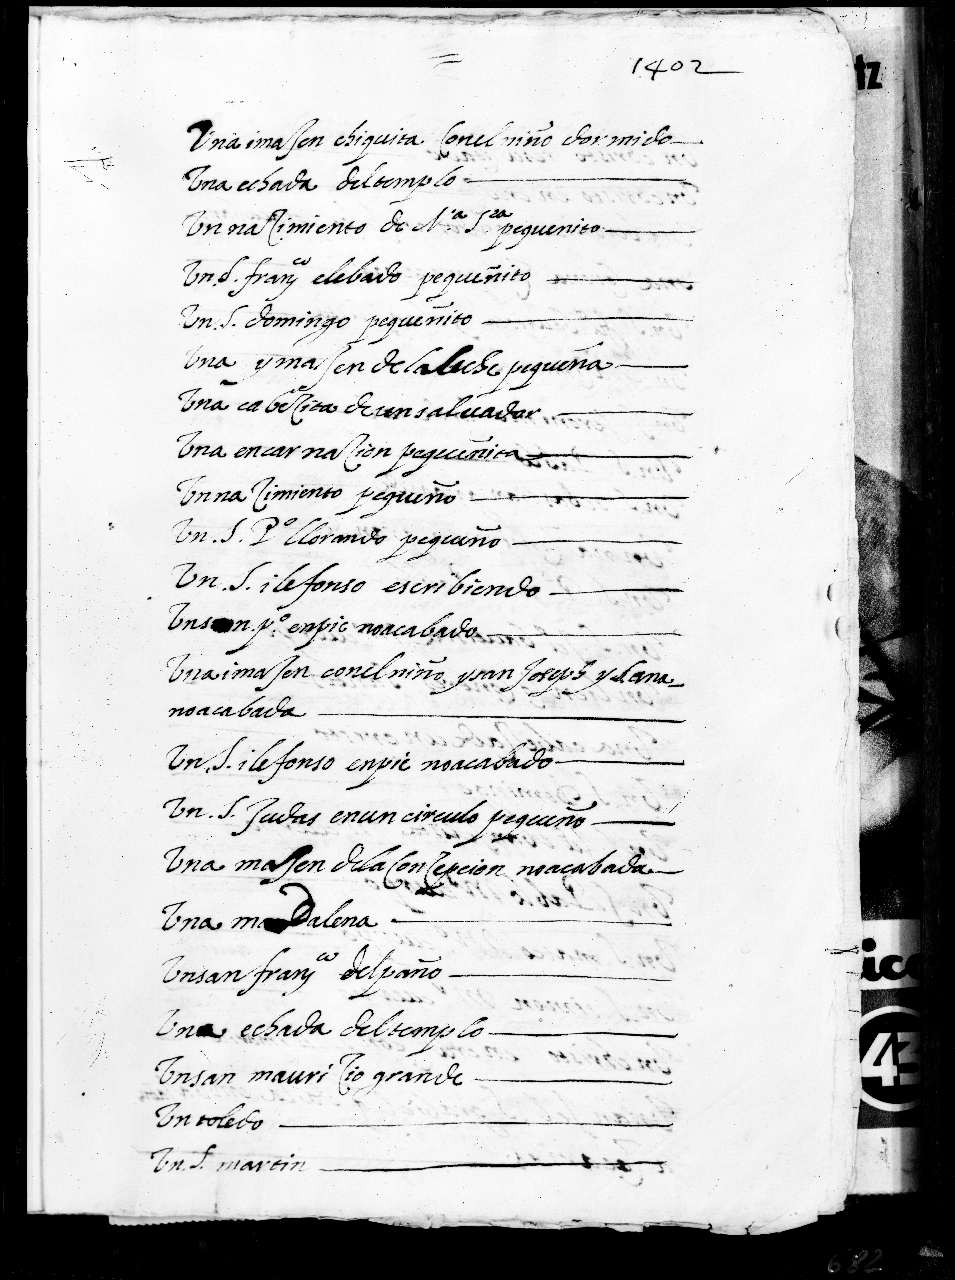 1402
Una imaJen chiquita Con el niño dormido
Una echada del templo
Un naCimiento de Nra Sra pequenito
Un S. franco elebado pequeñito
Un S. domingo pequeñito
Una ymaJen de la leche pequeña
Una cabeCita de un salvador
Una encarnaCion pequeñita
Un naCimiento pequeño
Un S. Po llorando pequeño
Un S. ilefonso escribiendo
Un san po en pie no acabado
Una imaJen con el niño y san Joseph y S. ana
no acabada
Un S. ilefonso en pie no acabado
Un S. Judas en un circulo pequeño
Una maJen de la ConCepcion no acabada
Una madalena
Un san franco del paño
Una echada del templo
Un san mauriCio grande
Un toledo
Un S. martin
tz
ico
43
682